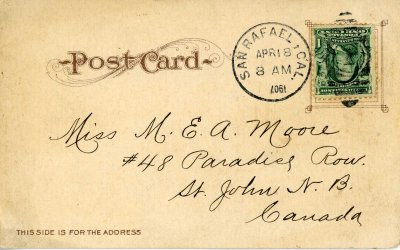 Post Card
SAN RAFAEL, CAL.
APR 18
8 AM
1907
Miss M. E. A. Moore
#48 Paradise Row.
St. John N. B.
Canada
THIS SIDE IS FOR THE ADDRESS